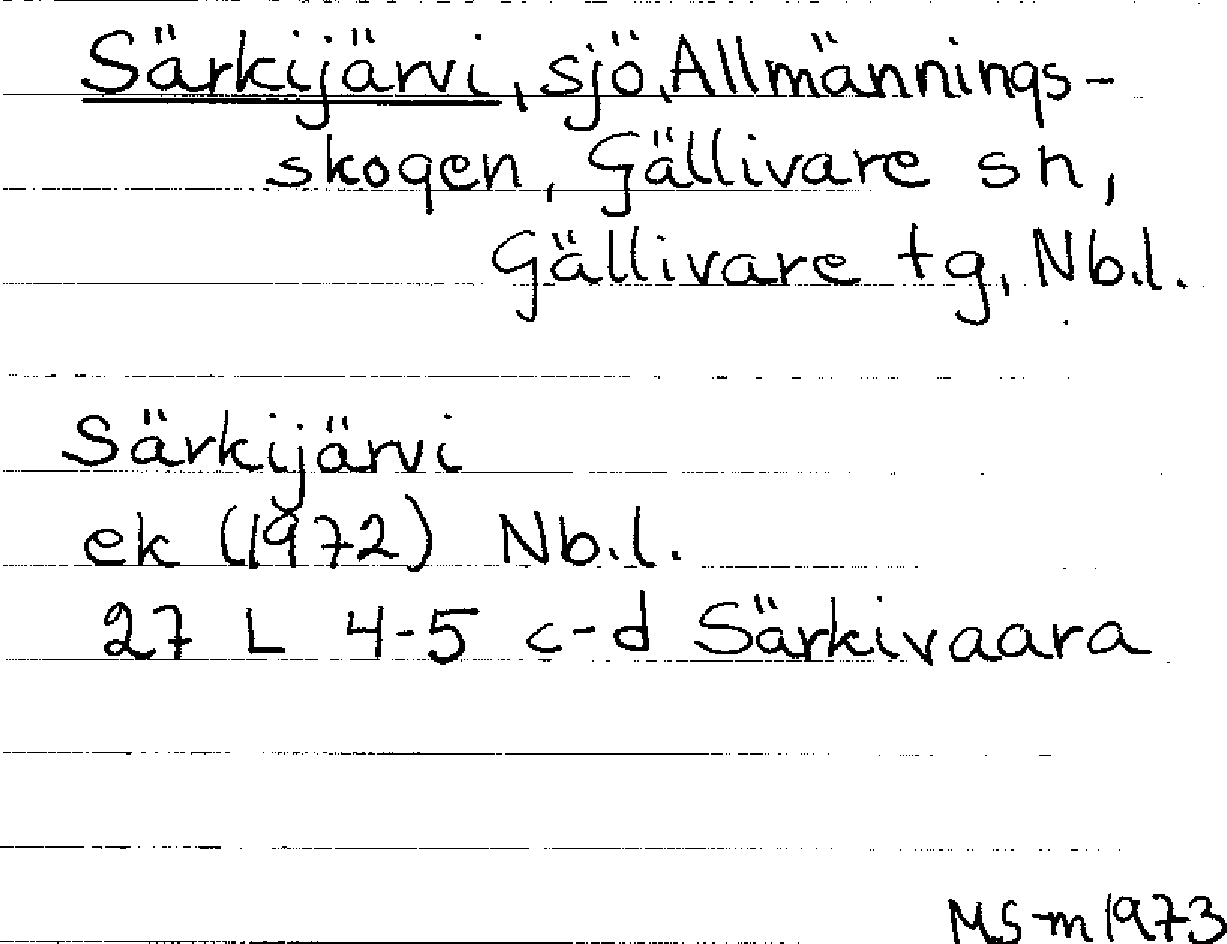 Särkijärvi, sjö, Allmännings-
skogen, Gällivare sn,
Gällivare tg, Nb.l.
Särkijärvi
ek (1972) Nb.l.
27 L 4-5 c-d Särkivaara
MS-m 1973